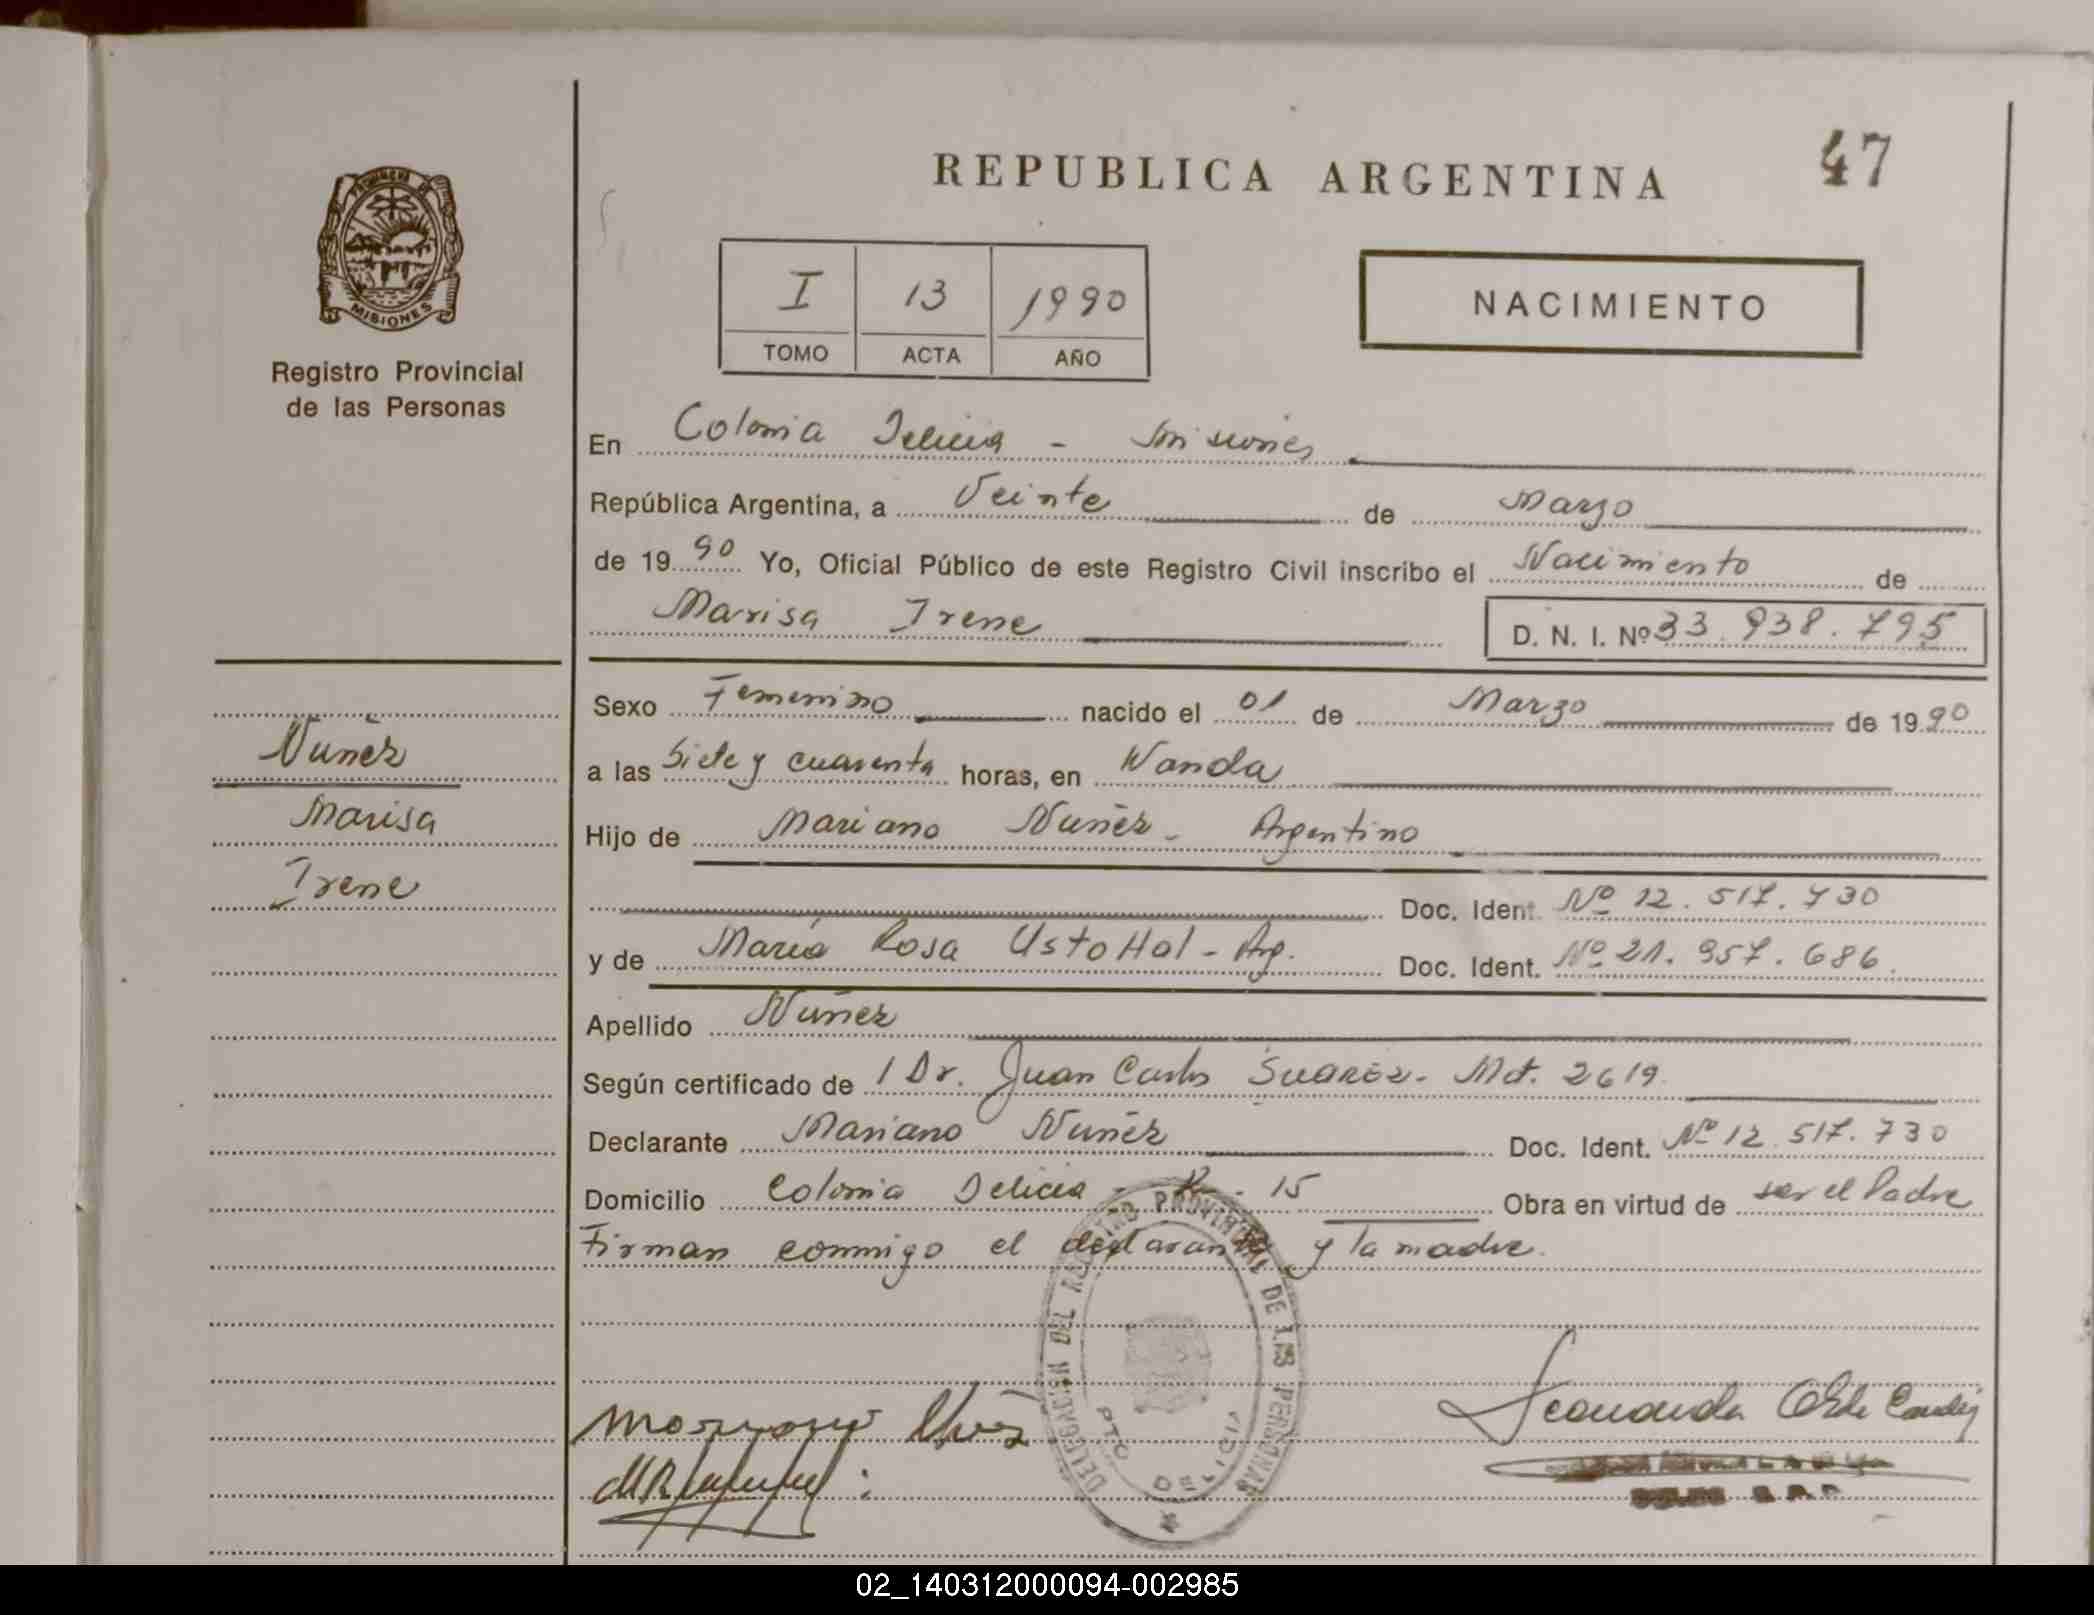 47
REPUBLICA ARGENTINA
PROVINCIA DE
MISIONES
Registro Provincial
de las Personas
I 13 1990
TOMO ACTA AÑO
NACIMIENTO
En Colonia Delicia - Misiones
República Argentina, a Veinte de Marzo
de 19 90 Yo, Oficial Público de este Registro Civil inscribo el Nacimiento de
Marisa Irene D. N. I. Nº 33.938.795
Sexo Femenino nacido el 01 de Marzo de 19 90
Nuñez
a las Siete y cuarenta horas, en Wanda
Marisa
Hijo de Mariano Nuñez - Argentino
Irene
Doc. Ident. Nº 12.517.730
y de María Rosa Ustohal - Arg. Doc. Ident. Nº 21.957.686
Apellido Nuñez
Según certificado de 1 Dr. Juan Carlos Suarez - Mat. 2619
Declarante Mariano Nuñez Doc. Ident. Nº 12.517.730
Domicilio Colonia Delicia - K - 15 Obra en virtud de ser el Padre
Firman conmigo el declarante y la madre.
DELEGACION DEL REGISTRO PROVINCIAL DE LAS PERSONAS
PTO DELICIA
02_140312000094-002985